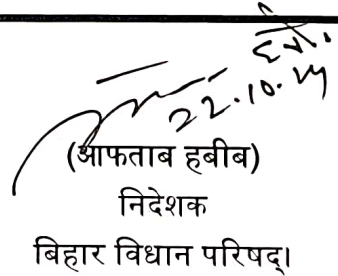 ह०/-
22.10.24
(आफताब हबीब)
निदेशक
बिहार विधान परिषद्।